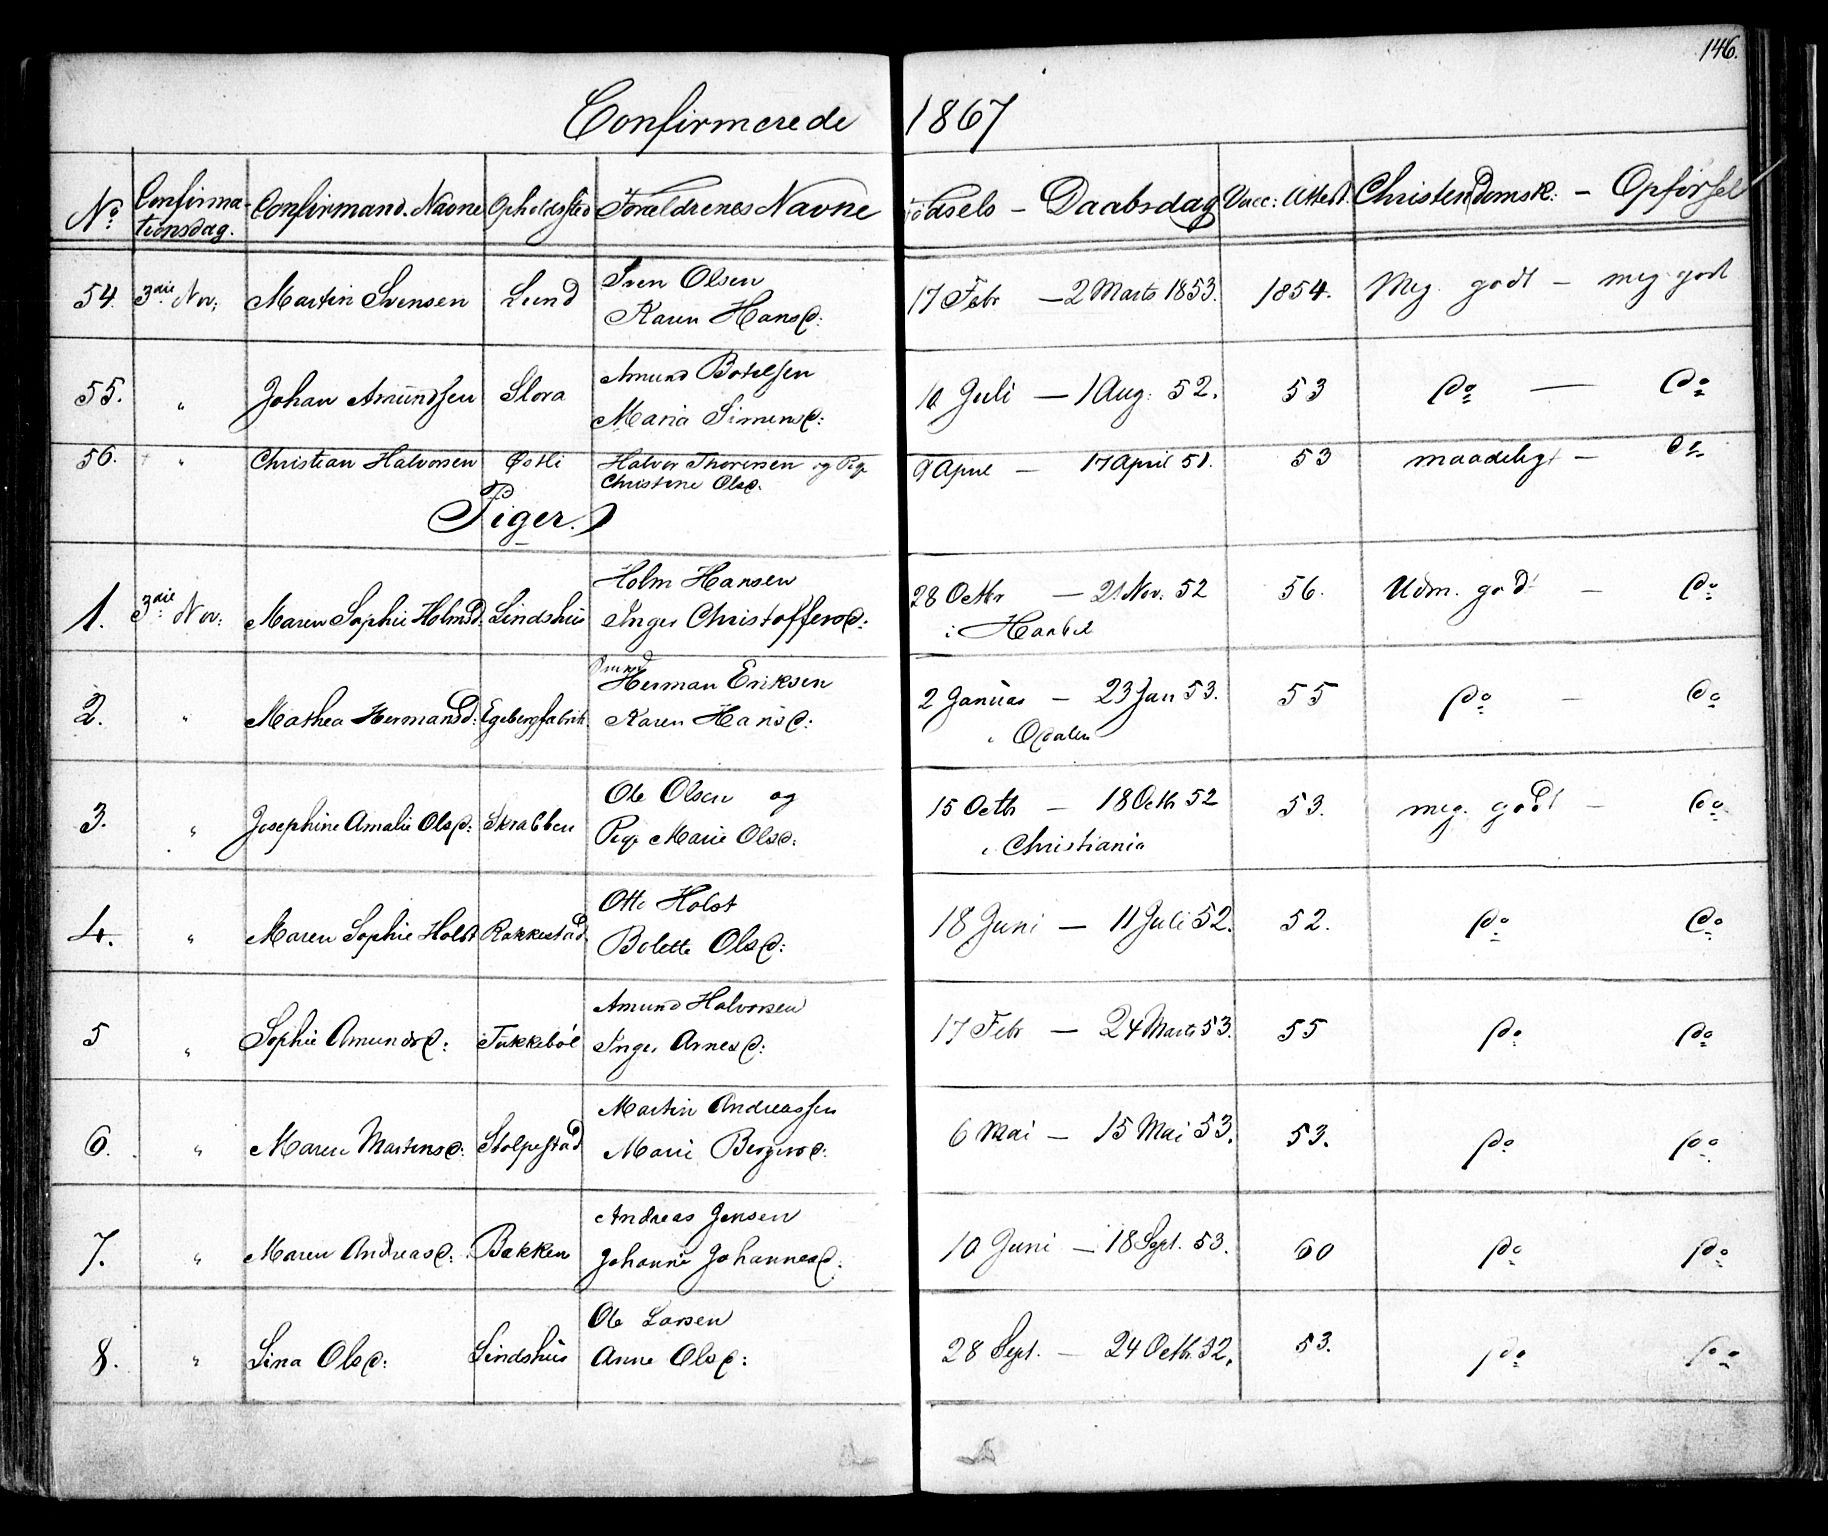 146.
Confirmerede 1867
No. Confirma- tionsdag. Confirmand. Navne Opholdssted Forældrenes Navne Fødsels - Daabsdag Vacc: Attest. Christendomsk: - Opførsel
54. 3die Nov: Martin Svensen Lund Sven Olsen 17 Febr - 2 Marts 1853. 1854. Meg. godt - meg godt
Karen Hansd:
55. " Johan Amundsen Slora Amund Botelsen 10 Juli - 1 Aug: 52. 53 do - do
Maria Simensd:
56. " Christian Halvorsen Østli Halvor Thoresen og Pige 9 April - 17 April 51. 53 maadeligt - do
Christine Olsd.
Piger.
1. 3die Nov: Maren Sophie Holmsd: Lindshus Holm Hansen 28 Octbr - 21 Nov: 52 56. Udm. godt - do
Inger Christoffersd: i
2. " Mathea Hermansd: Egebergfabrik Herman Eriksen 2 Januar - 23 Jan 53. 55 do - do
Karen Hansd: i Odalen
3. " Josephine Amalie Olsd: Skrabben Ole Olsen og 15 Octb - 18 Octb 52 53. meg. godt - do
Pige Marie Olsd: i Christiania
4. " Maren Sophie Holst Rakkestad Otto Holst 18 Juni - 11 Juli 52. 52. do do
Bolette Olsd:
5 " Sophie Amundsd: Tukkebøl Amund Halvorsen 17 Febr - 24 Marts 53. 55 do do
Inger Arnesd:
6. " Maren Martinsd: Stolpestad Martin Andreassen 6 Mai - 15 Mai 53. 53. do do
Marie Bergersd:
7. " Maren Andreasd: Bakken Andreas Jensen 10 Juni - 18 Sept. 53. 60 do do
Johanne Johannesd:
8. " Lina Olsd: Lindshus Ole Larsen 28 Sept. - 24 Octb. 32. 53. do do
Anne Olsd: